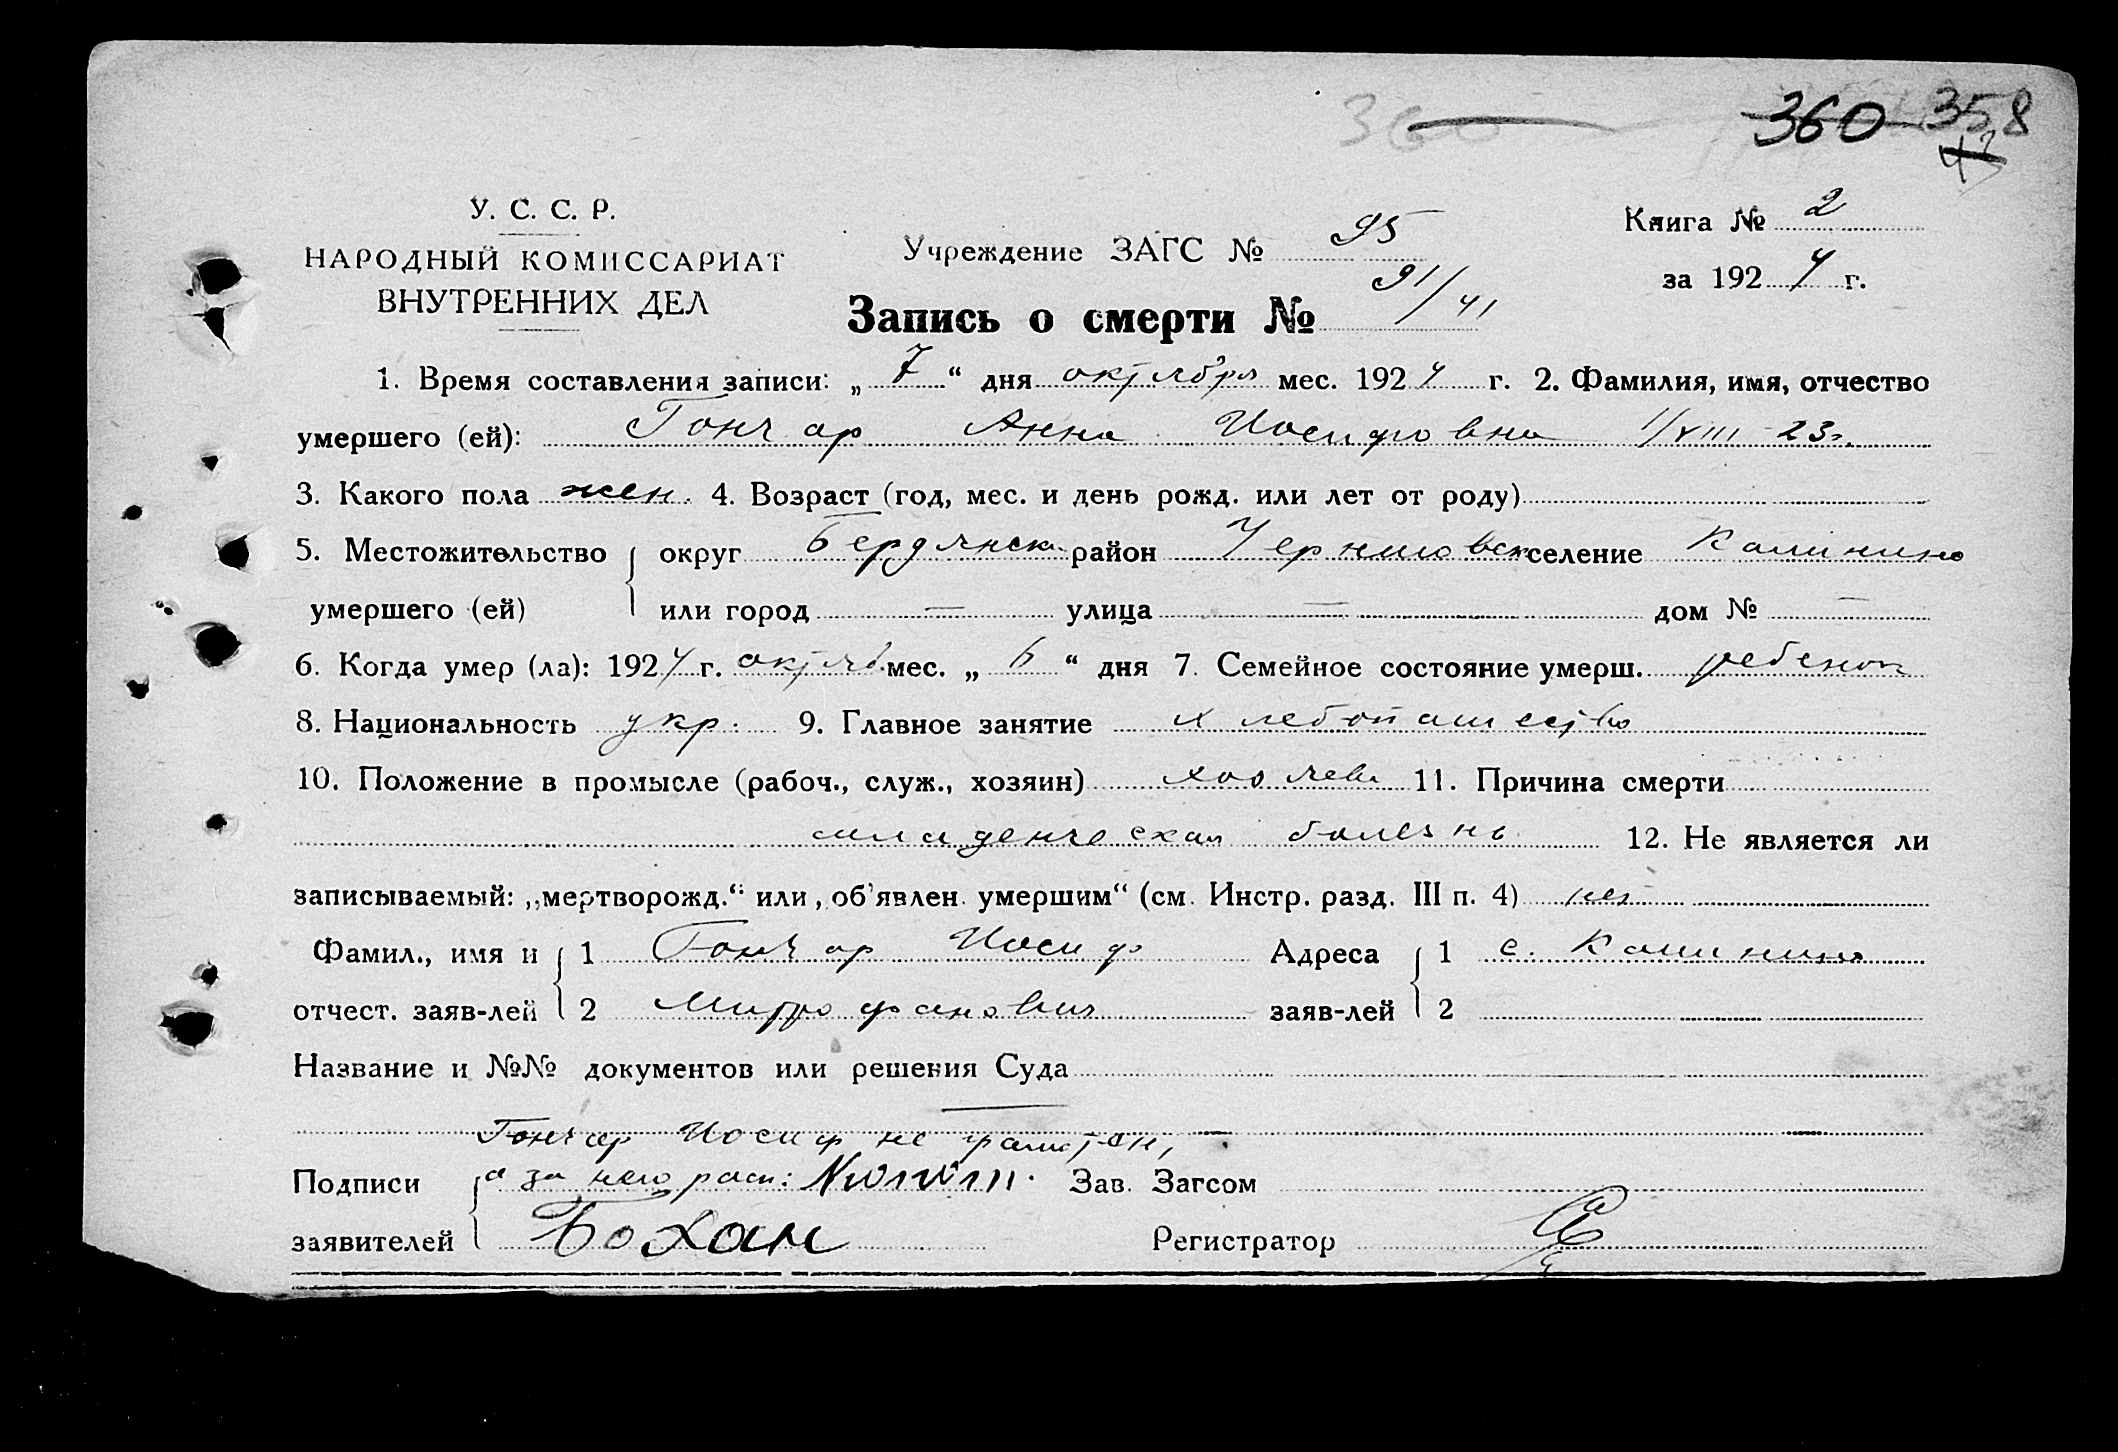 360 360 358
У. С. С. Р.
НАРОДНЫЙ КОМИССАРИАТ
ВНУТРЕННИХ ДЕЛ
Учреждение ЗАГС № 95
Книга № 2
за 1924 г.
Запись о смерти № 91/41
1. Время составления записи: „7“ дня октября мес. 1924 г. 2. Фамилия, имя, отчество
умершего (ей): Гончар Анна Иосифовна 1/VIII-23г.
3. Какого пола жен. 4. Возраст (год, мес. и день рожд. или лет от роду)
5. Местожительство округ Бердянск. район Черниговск селение Калинино
умершего (ей) или город — улица — дом № —
6. Когда умер (ла): 1924 г. октяб. мес. „6“ дня 7. Семейное состояние умерш. ребенок
8. Национальность укр. 9. Главное занятие хлебопашество
10. Положение в промысле (рабоч., служ., хозяин) 11. Причина смерти
младенческая болезнь 12. Не является ли
записываемый: „мертворожд.“ или „об’явлен. умершим“ (см. Инстр. разд. III п. 4) нет
Фамил., имя и 1 Гончар Иосиф Адреса 1 с. Калинино
отчест. заяв-лей 2 Митрофанович заяв-лей 2
Название и №№ документов или решения Суда
Гончар Иосиф не грамотен,
Подписи а за него расп: Зав. Загсом
заявителей Бохан Регистратор